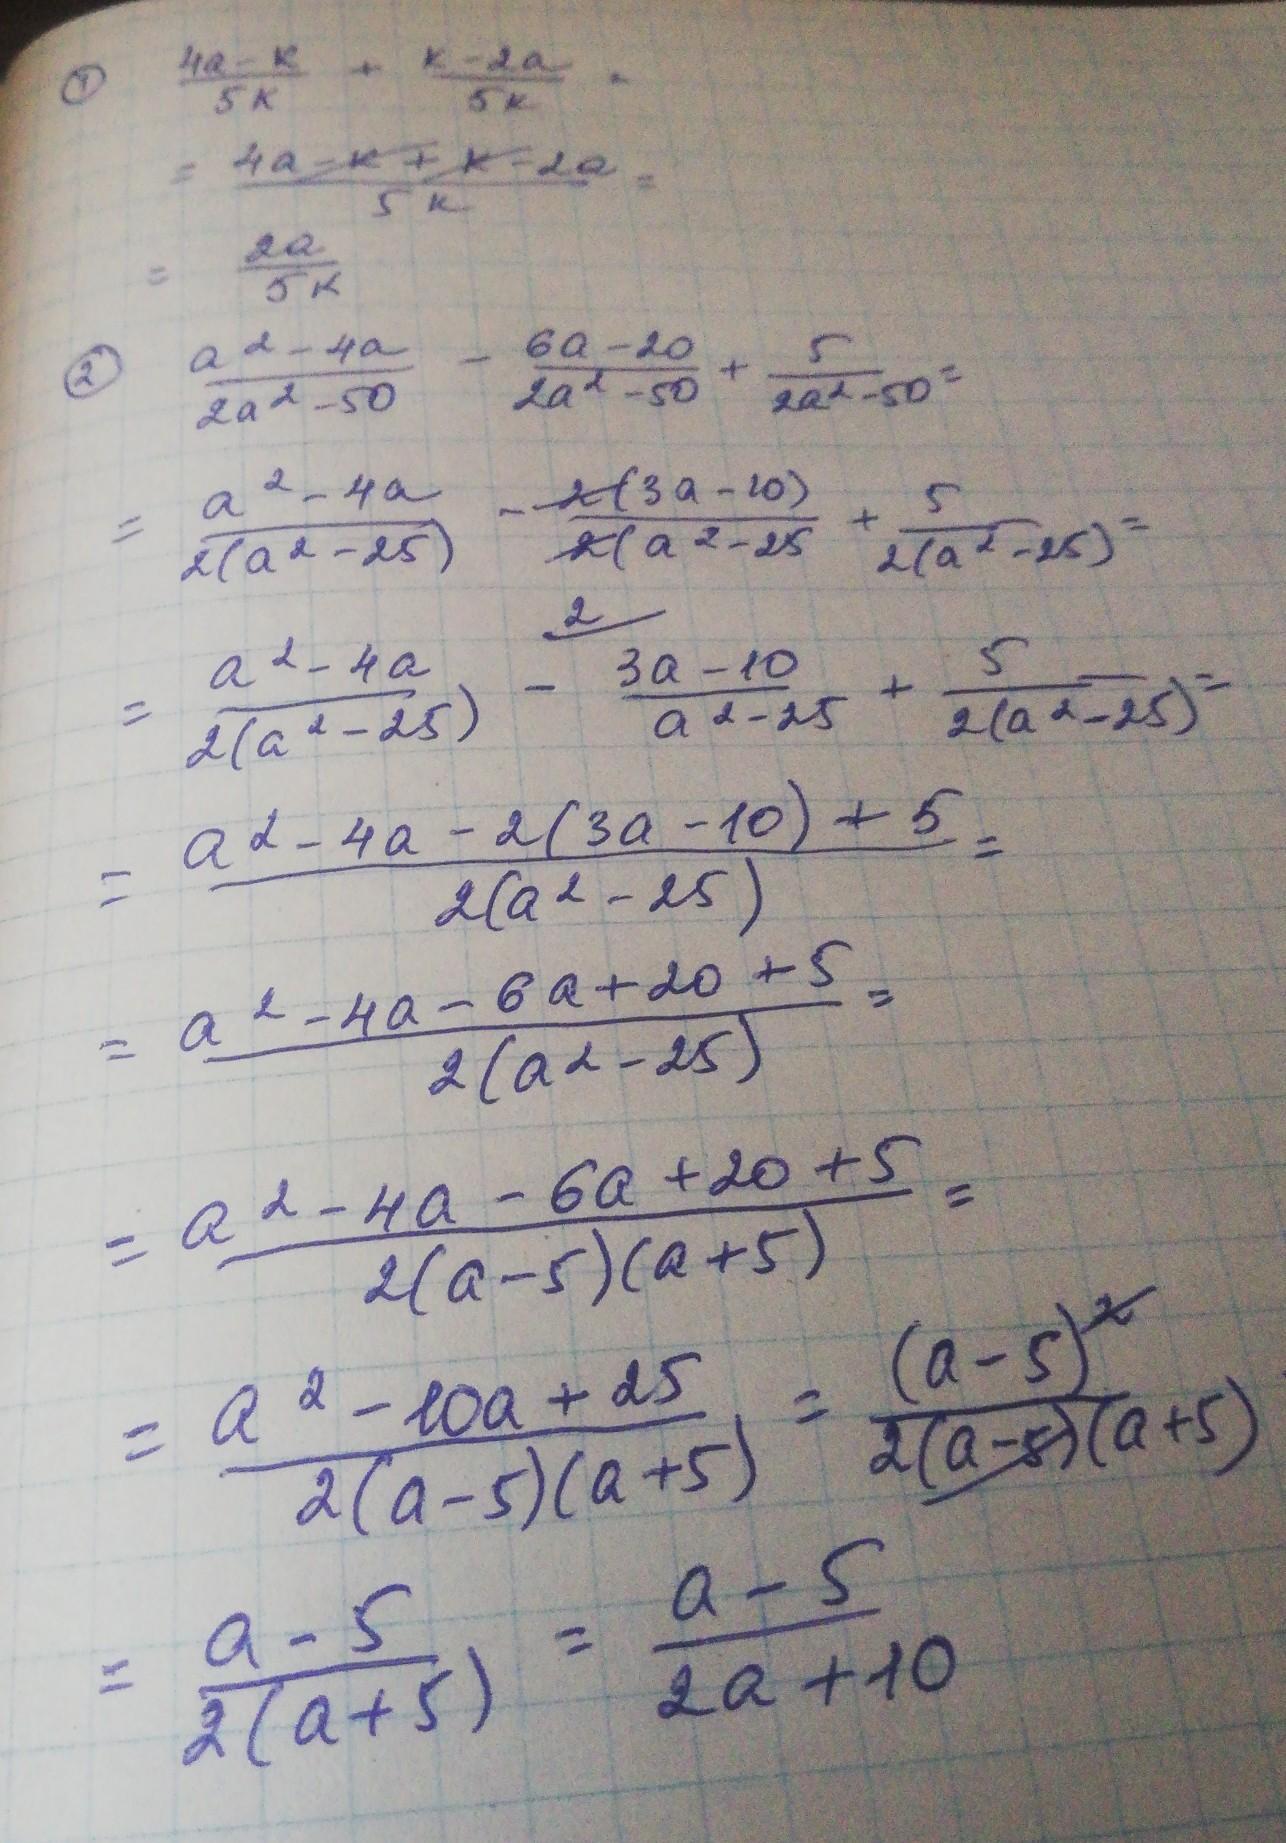 ① (4a-к)/(5к) + (к-2a)/(5к) =
= (4a-к+к-2a)/(5к) =
= 2a/(5к)
② (a²-4a)/(2a²-50) - (6a-20)/(2a²-50) + 5/(2a²-50) =
= (a²-4a)/(2(a²-25)) - 2(3a-10)/(2(a²-25) + 5/(2(a²-25)) =
2
= (a²-4a)/(2(a²-25)) - (3a-10)/(a²-25) + 5/(2(a²-25)) =
= (a²-4a-2(3a-10)+5)/(2(a²-25)) =
= (a²-4a-6a+20+5)/(2(a²-25)) =
= (a²-4a-6a+20+5)/(2(a-5)(a+5)) =
= (a²-10a+25)/(2(a-5)(a+5)) = (a-5)²/(2(a-5)(a+5))
= (a-5)/(2(a+5)) = (a-5)/(2a+10)